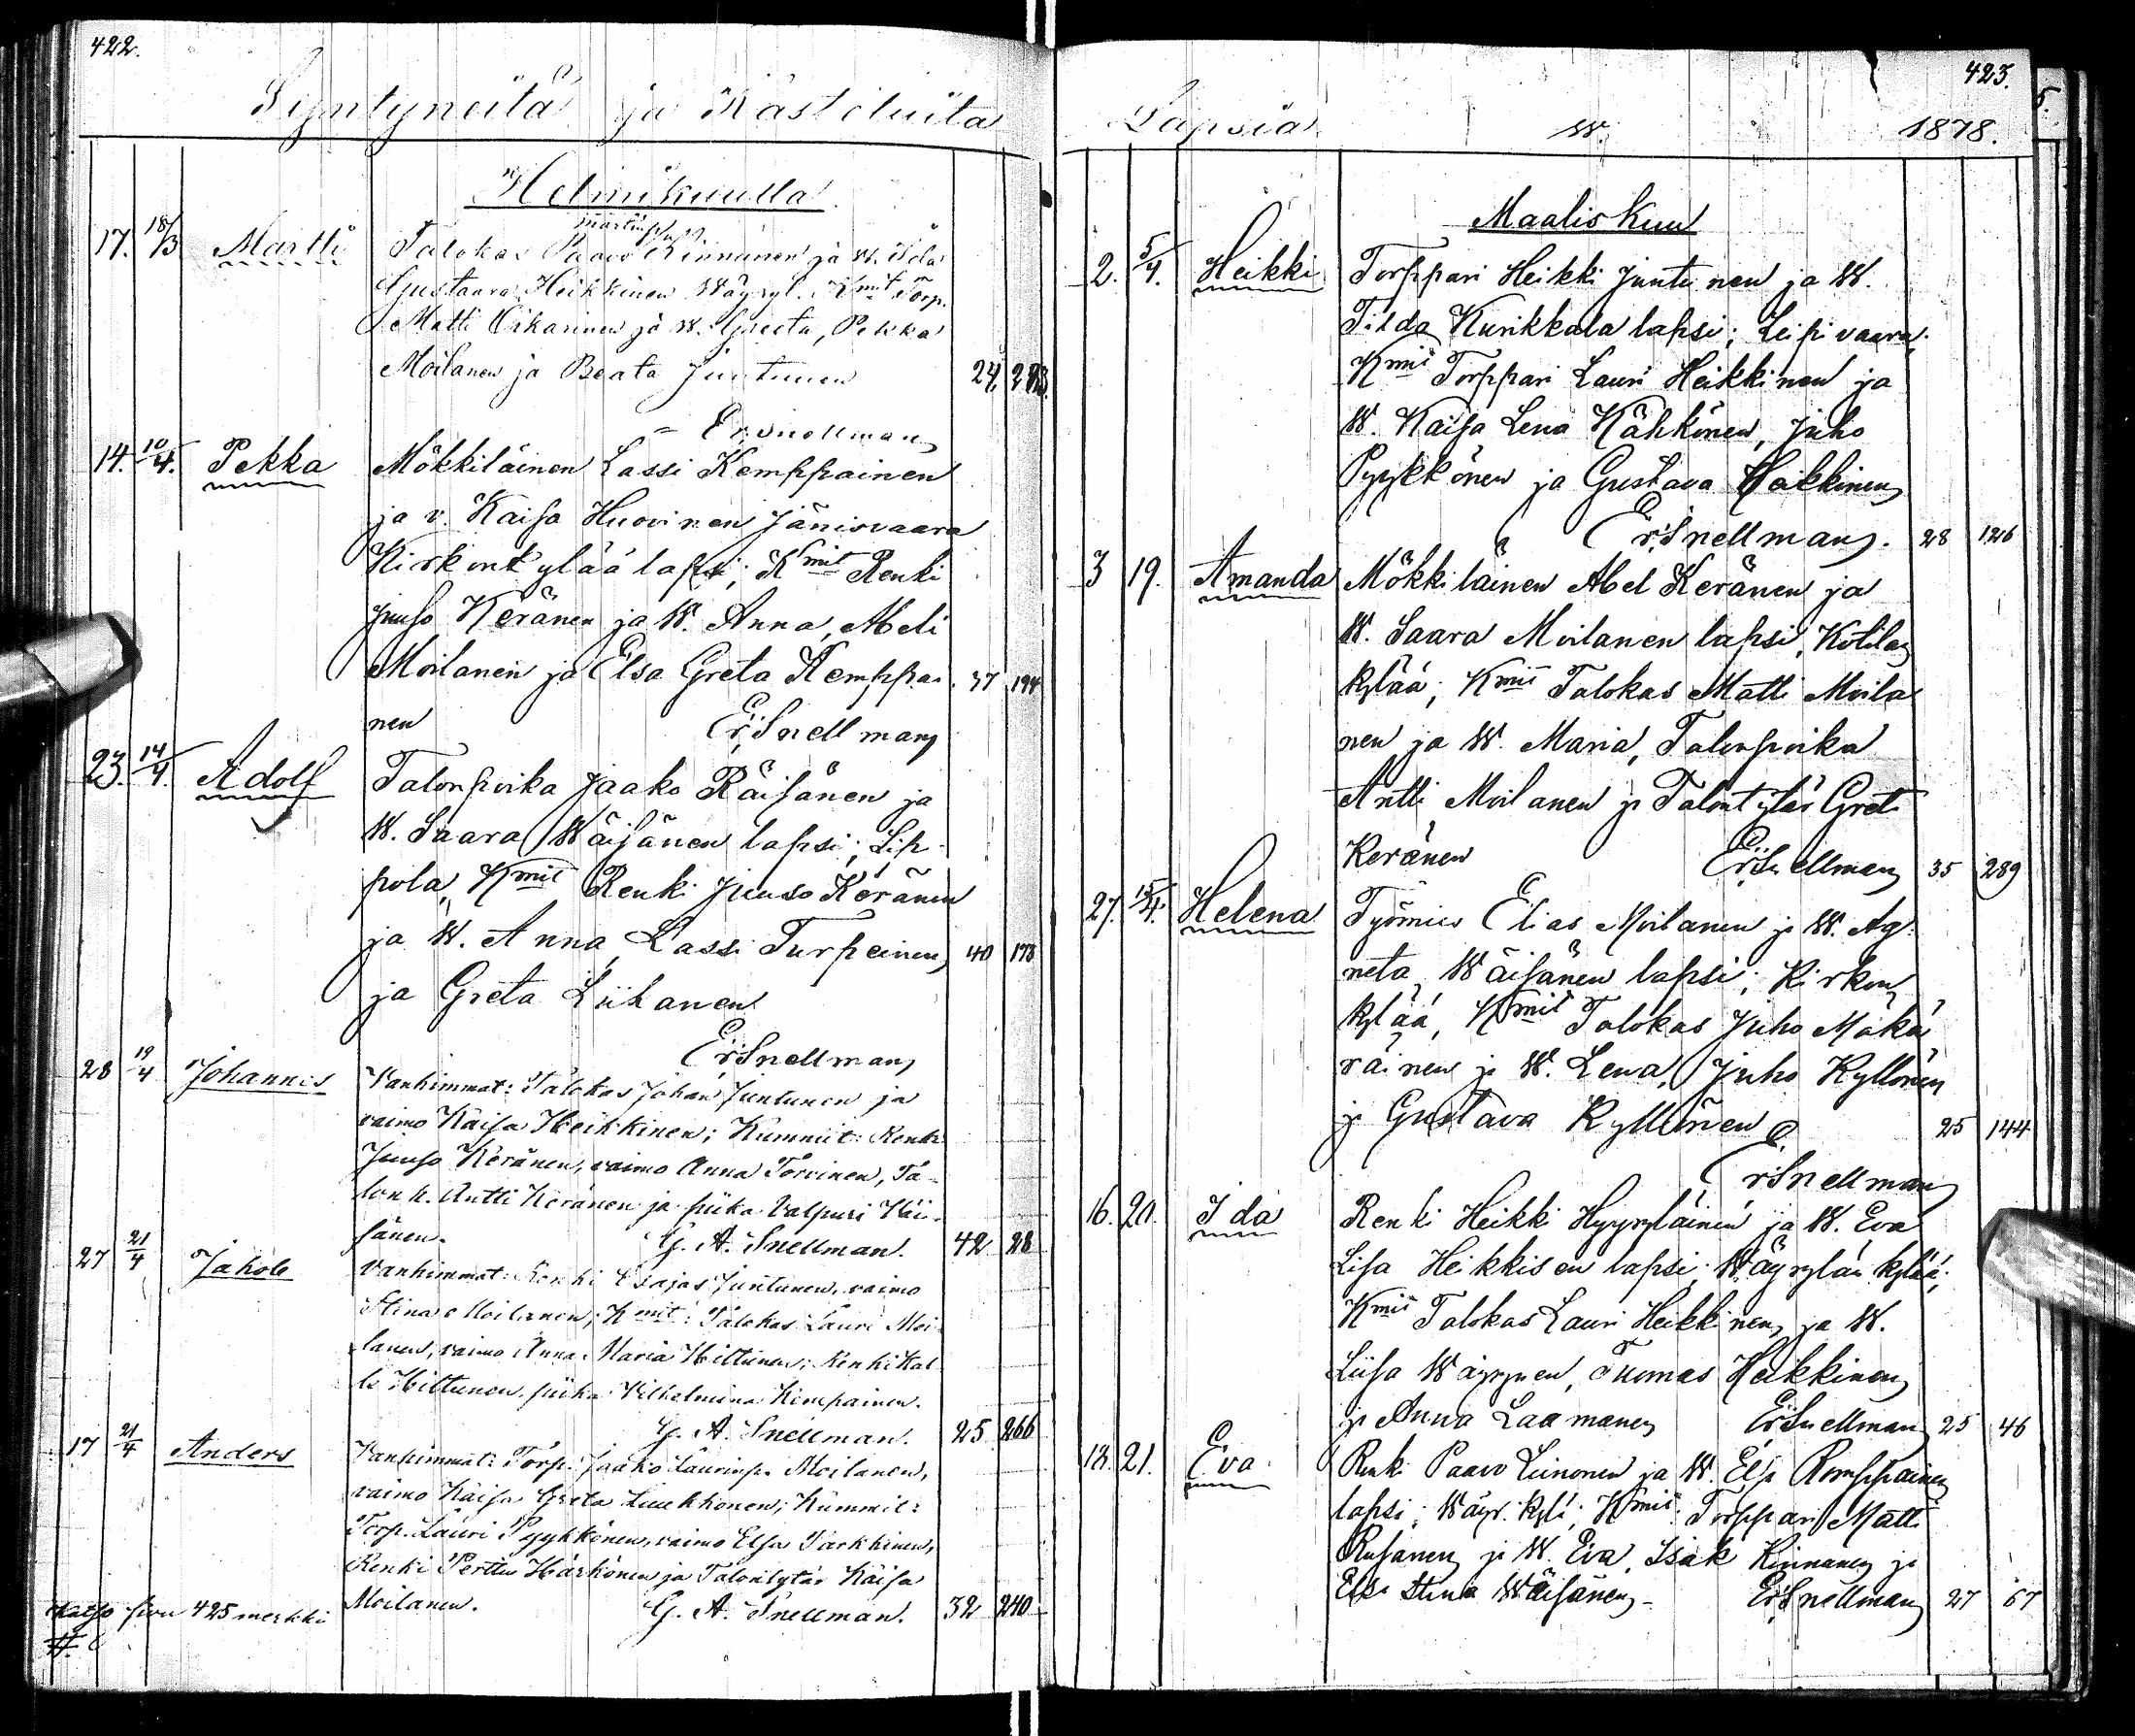 422.
Syntyneitä ja Kastetuita
Helmikuulla
Martinp.
17. 18/3 Martti Talokas Paavo Kinnunen ja W. Ida
Gustaava Heikkinen Wäyryl. Kmit Torp.
Matti Oikarinen ja W. Greeta, Pekka
Moilanen ja Beata Juntunen 24
Er. Snellman
14. 10/4. Pekka Mökkiläinen Lassi Kemppainen
ja v. Kaisa Huovinen Jänisvaara
Kirkonkylää lapsi; Kmit Renki
Juuso Keränen ja W. Anna, Abeli
Moilanen ja Elsa Greta Kemppai 37 194
nen Er. Snellman
23. 14/4. Adolf Talonpoika Jaako Räisänen ja
W. Saara Wäisänen lapsi; Lip-
pola, Kmit Renki Juuso Keränen
ja W. Anna, Lassi Turpeinen 40 178
ja Greta Liihanen
Er. Snellman
28 19/4 Johannes Vanhimmat: Talokas Johan Juntunen ja
vaimo Kaisa Heikkinen; Kummit: Renki
Juuso Keränen, vaimo Anna Torvinen, Ta-
lonp. Antti Keränen ja piika Valpuri Väi-
sänen. G. A. Snellman. 42 28
27 21/4 Jakob Vanhimmat: Renki Esajas Juntunen, vaimo
Stina Moilanen; Kmit: Talokas Lauri Moi-
lanen, vaimo Anna Maria Hiltunen; Renki Kal-
le Hiltunen, piika Vilhelmina Kimpainen.
G. A. Snellman. 25 266
17 21/4 Anders Vanhimmat: Torp. Jaako Laurinp. Moilanen,
vaimo Kaisa Greta Luukkonen; Kummit:
Torp. Lauri Pyykkönen, vaimo Elsa Tarkkinen,
Renki Perttu Härkönen ja Talontytär Kaisa
Moilanen. G. A. Snellman. 32 240
Katso sivu 425 merkki
#
423.
Lapsia W. 1878.
Maaliskuu
2. 5/4. Heikki Torppari Heikki Juntunen ja W.
Tilda Kurikkala lapsi; Leipivaara;
Kmit Torppari Lauri Heikkinen ja
W. Kaisa Lena Kähkönen, Juho
Pyykkönen ja Gustava Heikkinen
Er. Snellman. 28 126
3 19. Amanda Mökkiläinen Abel Keränen ja
W. Saara Moilanen lapsi, Kotilan
kylää; Kmit Talokas Matti Moila
nen ja W. Maria, Talonpoika
Antti Moilanen ja Talontytär Greta
Keränen Er. Snellman 35 289
27. 15/4. Helena Työmies Elias Moilanen ja W. Ag-
neta Wäisänen lapsi; Kirkon
kylää, Kmit Talokas Juho Mäkä
räinen ja W. Lena, Juho Kyllönen
ja Gustava Kyllönen 25 144
Er. Snellman
16. 20. Ida Renki Heikki Hyyryläinen ja W. Eva
Lisa Heikkisen lapsi; Wäyrylän kylää;
Kmit Talokas Lauri Heikkinen, ja W.
Liisa Wäyrynen, Tuomas Heikkinen
ja Anna Laamanen Er. Snellman 25 46
18. 21. Eva Renki Paavo Leinonen ja W. Elsa Romppainen
lapsi; Wäyr. kylä; Kmit Torppari Matti
Rusanen ja W. Eva, Isak Kinnanen ja
Elsa Stina Wäisänen. Er. Snellman 27 67